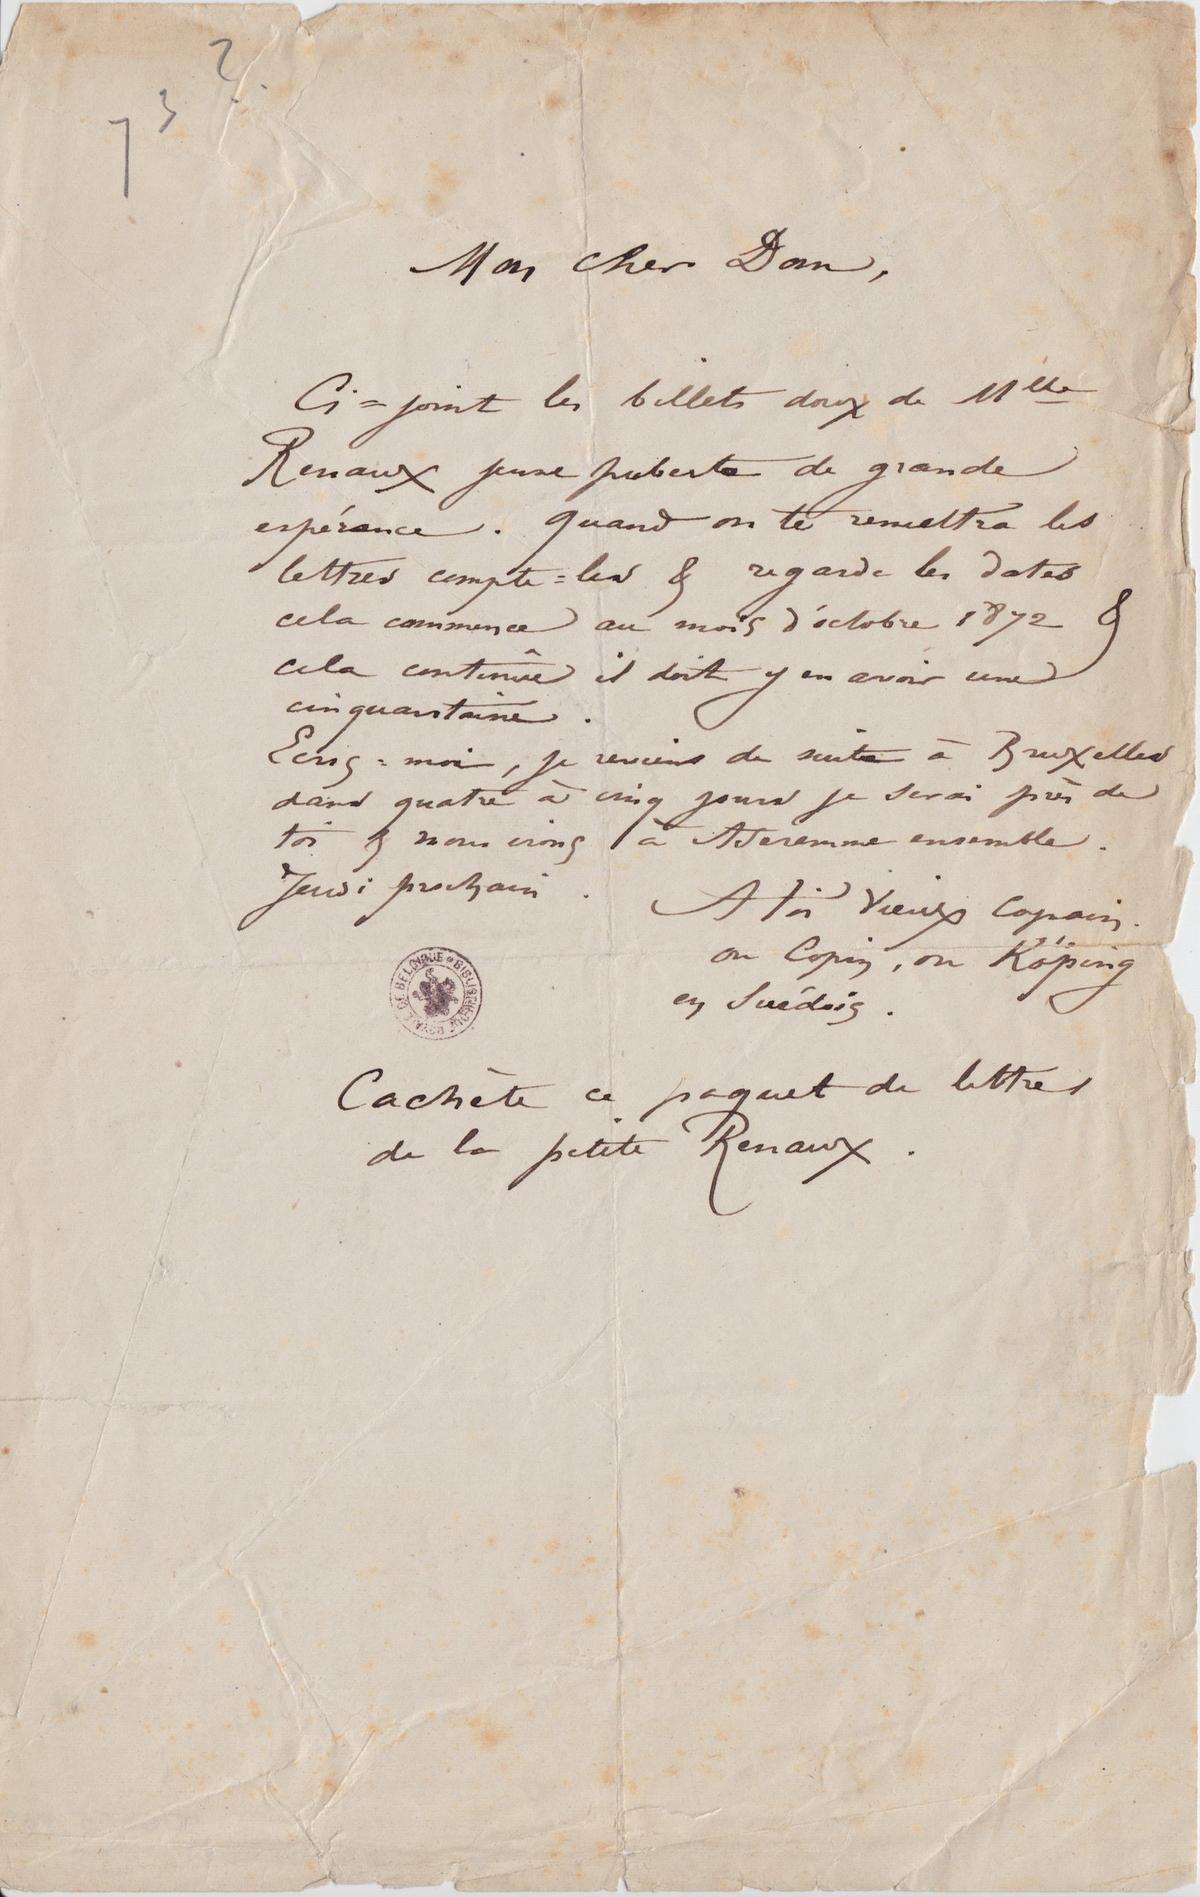 73 2.
Mon cher Dom,
Ci=joint les billets doux de Mlle
Renaux jeune puberte de grande
espérance. Quand on te remettra les
lettres compte=les & regarde les dates
cela commence au mois d'octobre 1872 &
cela continûe il doit y en avoir une
cinquantaine.
Ecris=moi, je reviens de suite à Bruxelles
dans quatre à cinq jours je serai près de
toi & nous irons à Anseremme ensemble.
Jeudi prochain.
A toi Vieux Copain.
ou Copin, ou Köping
en Suédois.
BIBLIOTHÈQUE ROYALE DE BELGIQUE
Cachète ce paquet de lettres
de la petite Renaux.